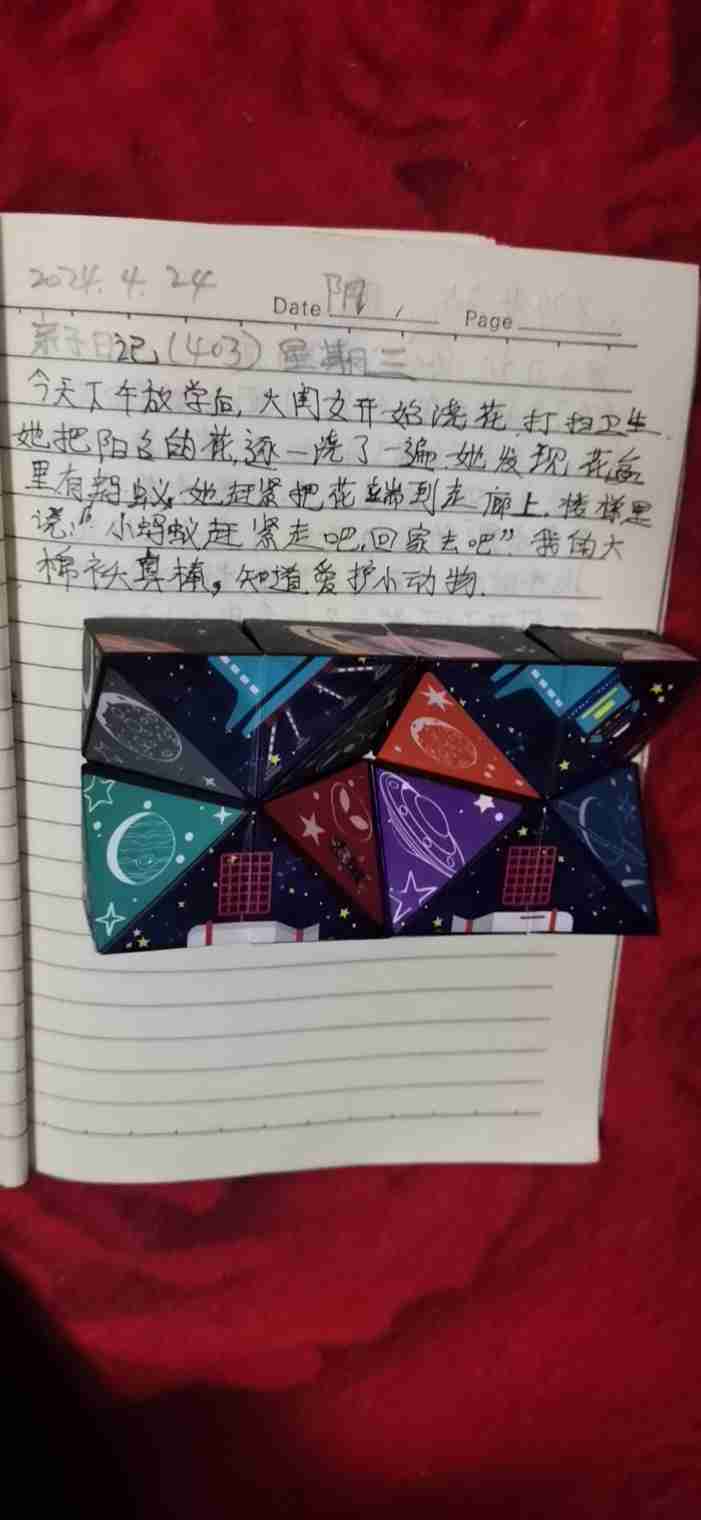 2024.4.24
Date 阴 Page
亲子日记(403) 星期三
今天下午放学后,大闺女开始浇花、打扫卫生.
她把阳台的花,逐一浇了一遍.她发现花盆
里有蚂蚁,她赶紧把花端到走廊上,
说:"小蚂蚁赶紧走吧,回家去吧".我的大
棉袄真棒,知道爱护小动物.